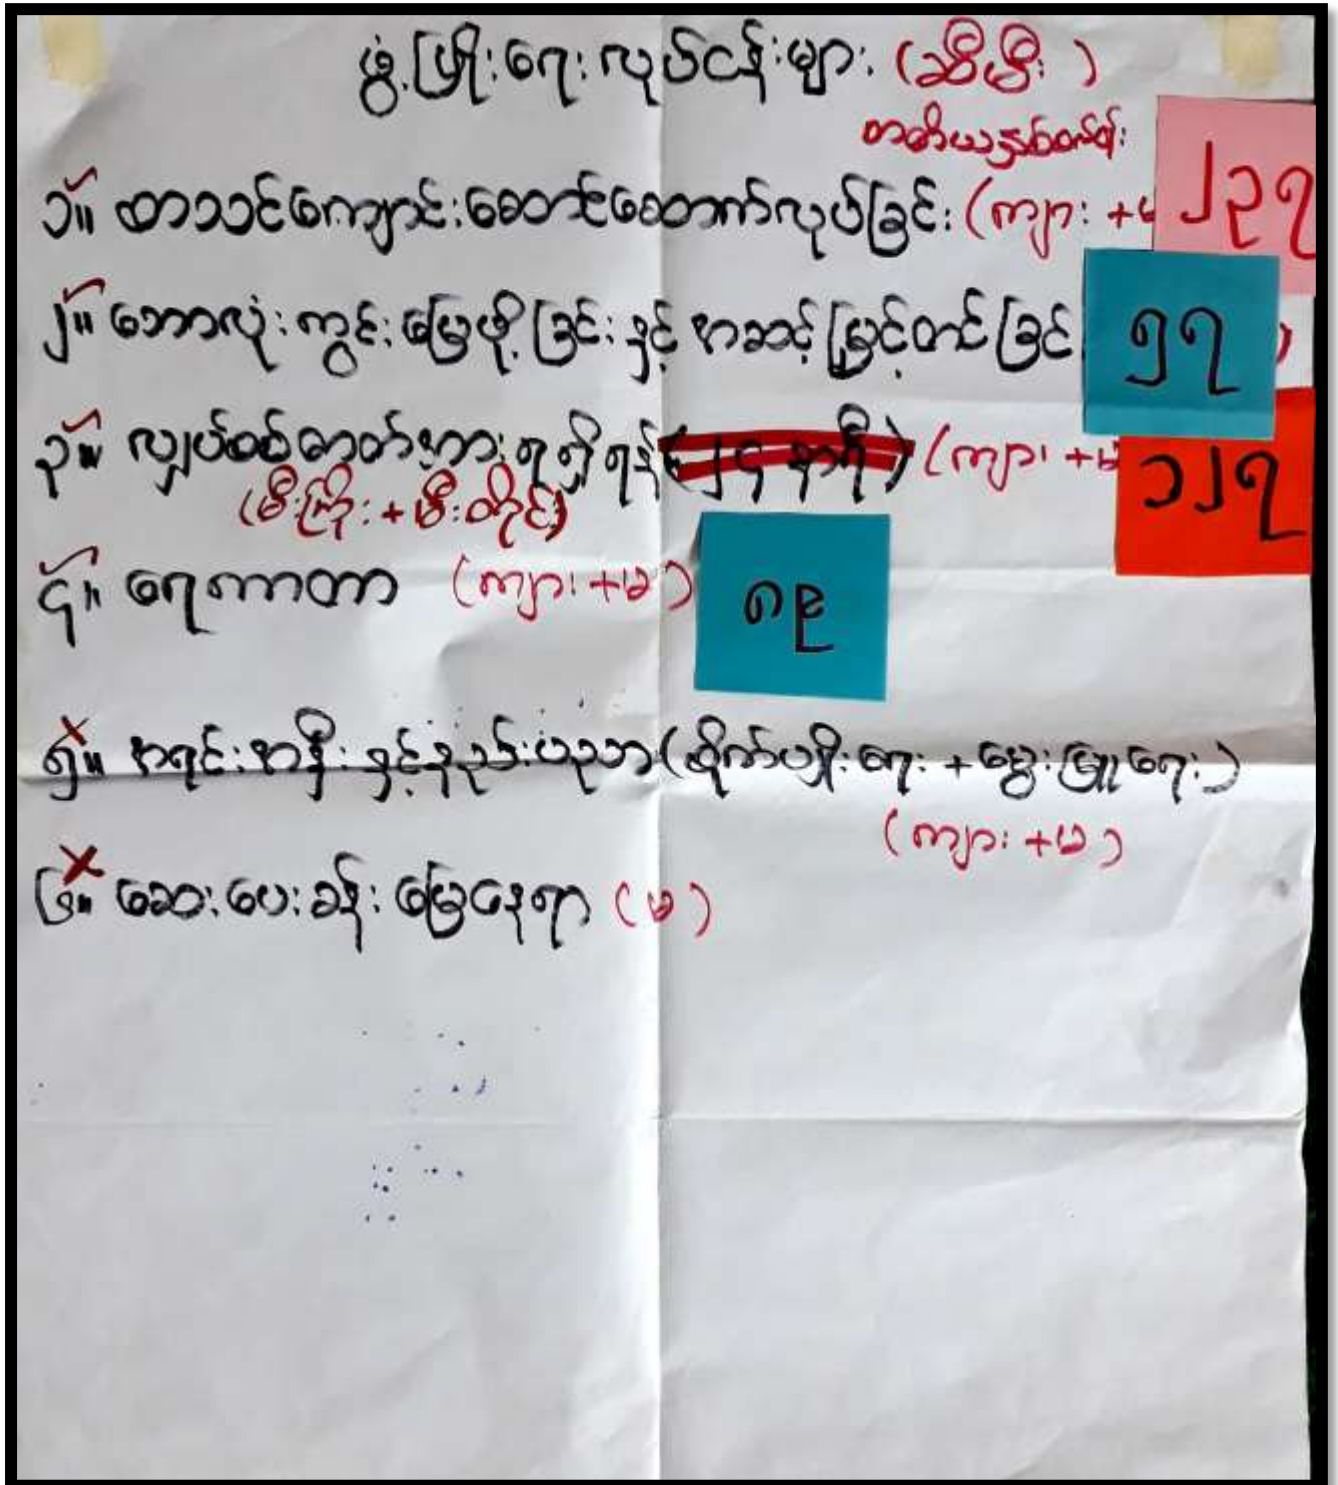 ဖွံ့ဖြိုးရေးလုပ်ငန်းများ (ဆီမီး)
တတိယနှစ်ဝက်
၁။ စာသင်ကျောင်းဆောင်ဆောက်လုပ်ခြင်း (ကျား + ၂၃၇
၂။ ဘောလုံးကွင်းမြေဖို့ခြင်းနှင့် အဆင့်မြှင့်တင်ခြင် ၅၇ )
၃။ လျှပ်စစ်ဓာတ်အားရရှိရန် (၂၄ နာရီ) (ကျား + ၁၂၇
(မီးကြိုး + မီးတိုင်)
၄။ ရေကာတာ (ကျား + မ) ၈၉
၅။ အရင်းအနှီးနှင့်နည်းပညာ (စိုက်ပျိုးရေး + မွေးမြူရေး)
(ကျား + မ)
၆။ ဆေးပေးခန်းမြေနေရာ (မ)